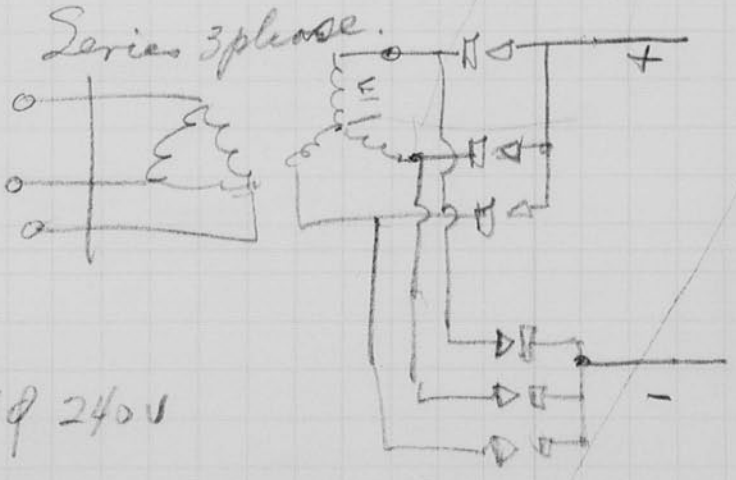 Series 3 phase.
+
E
-
φ 240 V